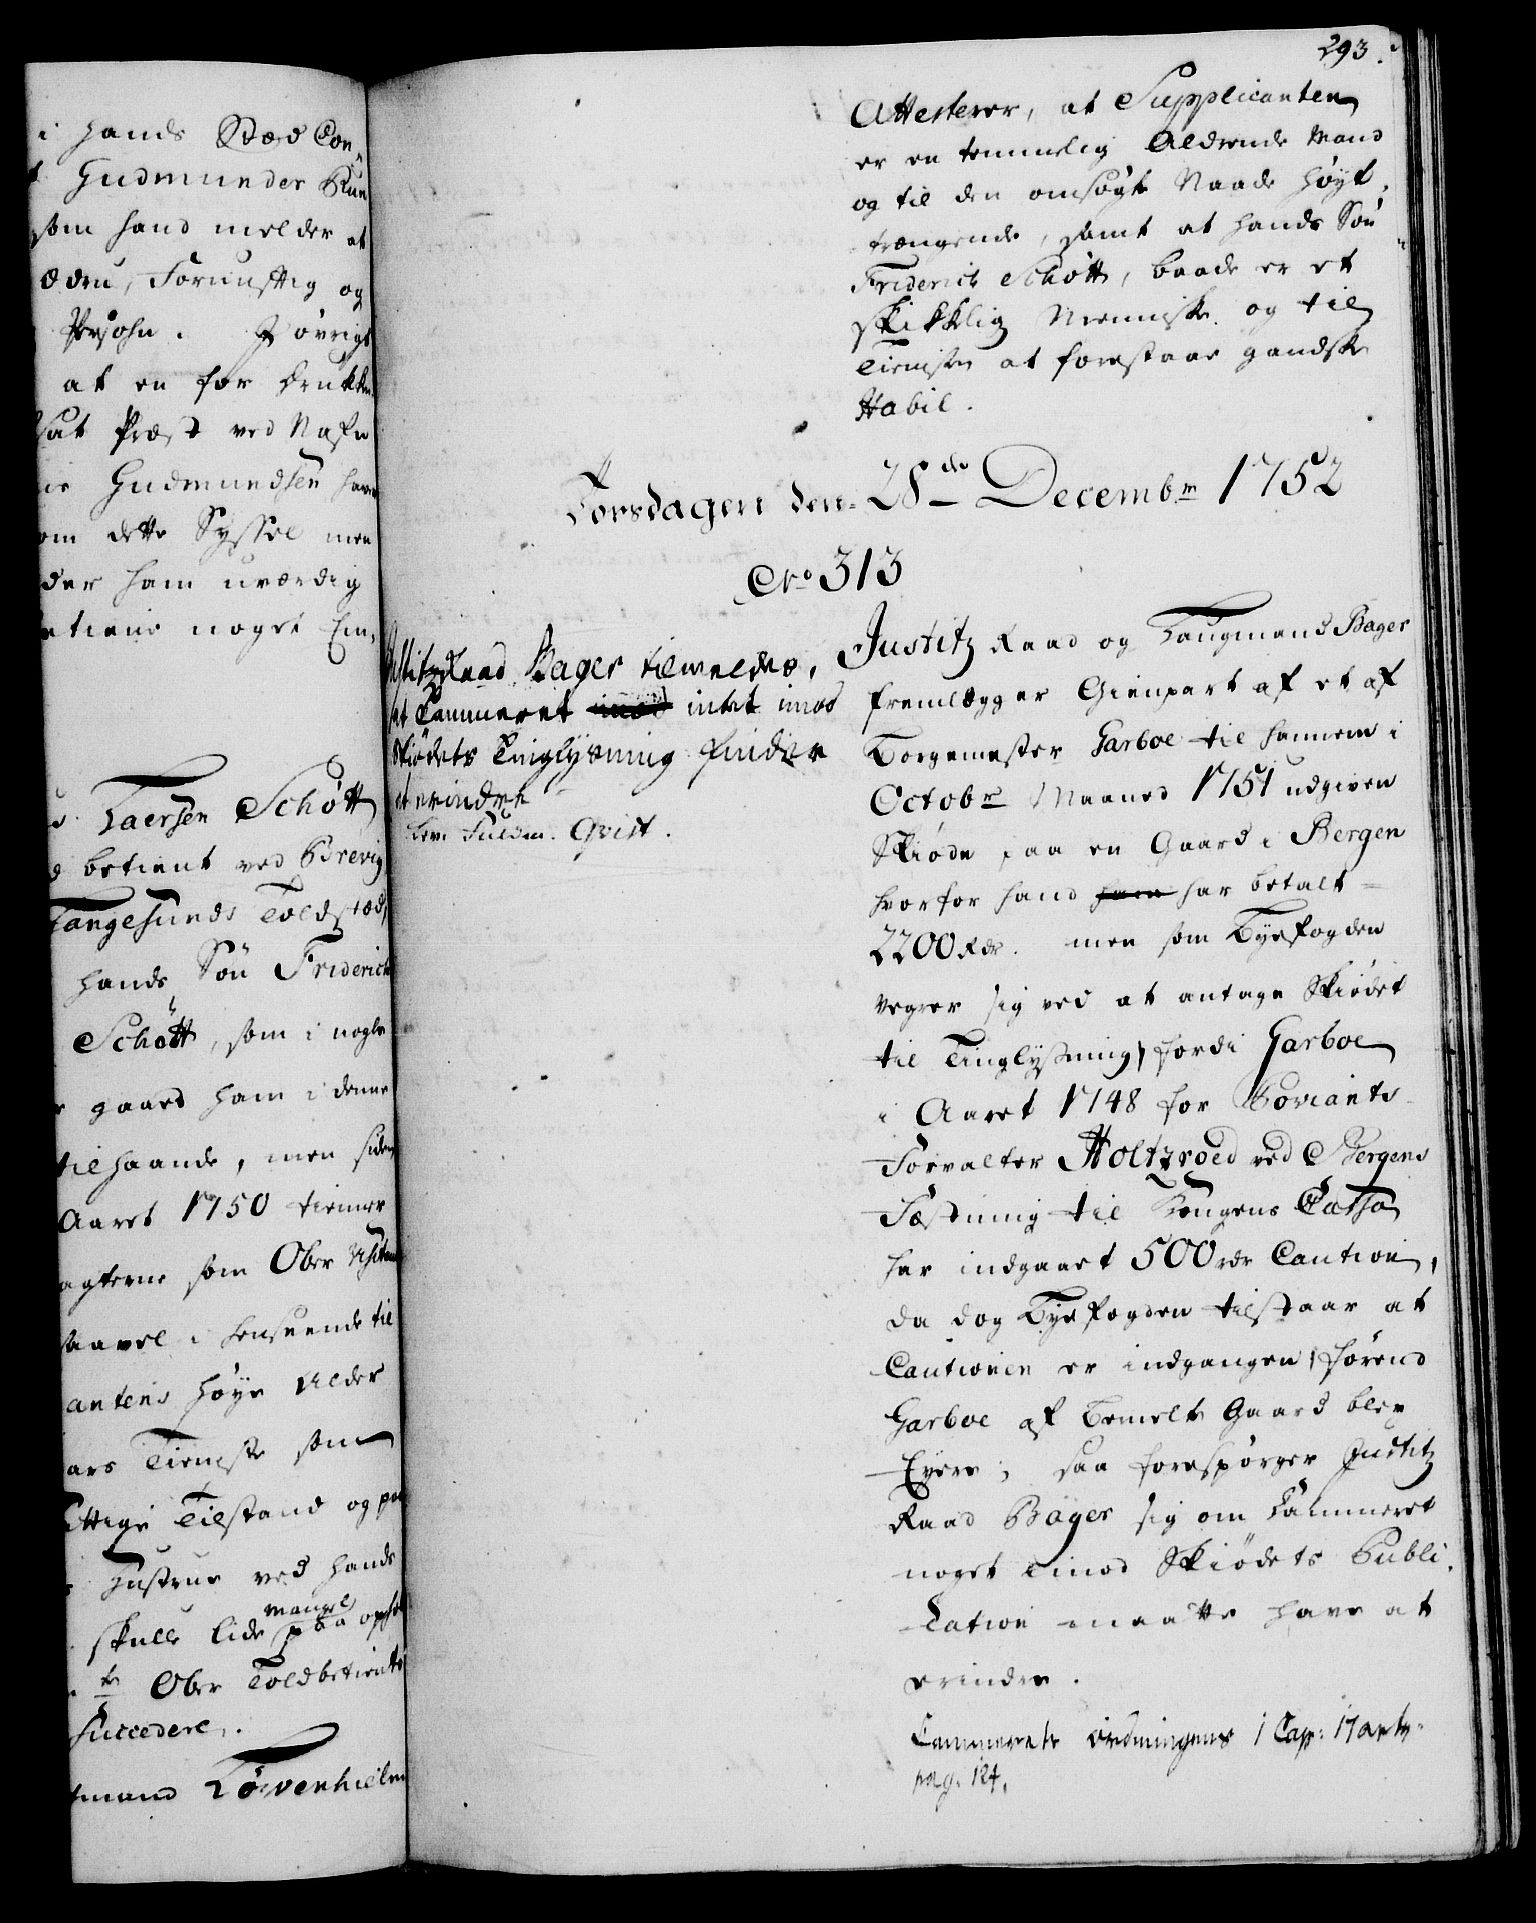 i hands Stæd Con-
Gudmunder Run
som hand melder at
ædru, Fornufftig og
Persohn. I øvrigt
at en for drukken
sat Præst ved Nafn
Gudmundsen haver
om dette Syssel men
der ham uværdig
betiene noget Em-
Laersen Schøtt
betient ved Brevig
Langesunds Toldstæd,
hands Søn Friderich
Schøtt, som i nogle
gaaet ham i denne
tilhaande, men siden
Aaret 1750 tiener
agterne som Ober Visiteur
saavel i henseende til
antens høye Alder
ars Tieniste som
ttige Tilstand og paa
Hustrue ved hands
skulle lide mangel paa opho
Ober Toldbetients
succedere.
tmand Løvenhielm
293.
Attesterer, at Supplicanten
er en temmelig Aldrende Mand
og til den omsøgte Naade høyt
trængende, samt at hands Søn
Friderich Schøtt, baade er et
skikkelig Menniske og til
Tienisten at forestaae gandske
Habil.
Torsdagen den 28de Decembr 1752
No 313
Justitz Raad Bager tilmeldes,
at Cammeret imod intet imod
Skiødets Tinglysning finder
at erindre
lev. Fuldm. Qvist.
Justitz Raad og Laugmand Bager
fremlegger Gienpart af et af
Borgemester Garboe til hannem i
Octobr Maaned 1751 udgiven
Skiøde paa en Gaard i Bergen
hvorfor hand have har betalt
2200 Rdr. men som Byefogden
vegrer sig ved at antage Skiødet
til Tinglysning, fordi Garboe
i Aaret 1748 for Proviants
Forvalter Holtzroed ved Bergens
Fæstning til Kongens Cassa
har indgaaet 500 rdr Caution,
da dog Byefogden tilstaar at
Cautionen er indgangen, førend
Garboe af bemelte Gaard blev
Eyere; saa forespørger Justitz
Raad Bager sig om Cammeret
noget imod Skiødets Publi-
cation maatte have at
erindre.
Cammerets Ordningens 1 Cap: 17 art:
pag. 124.